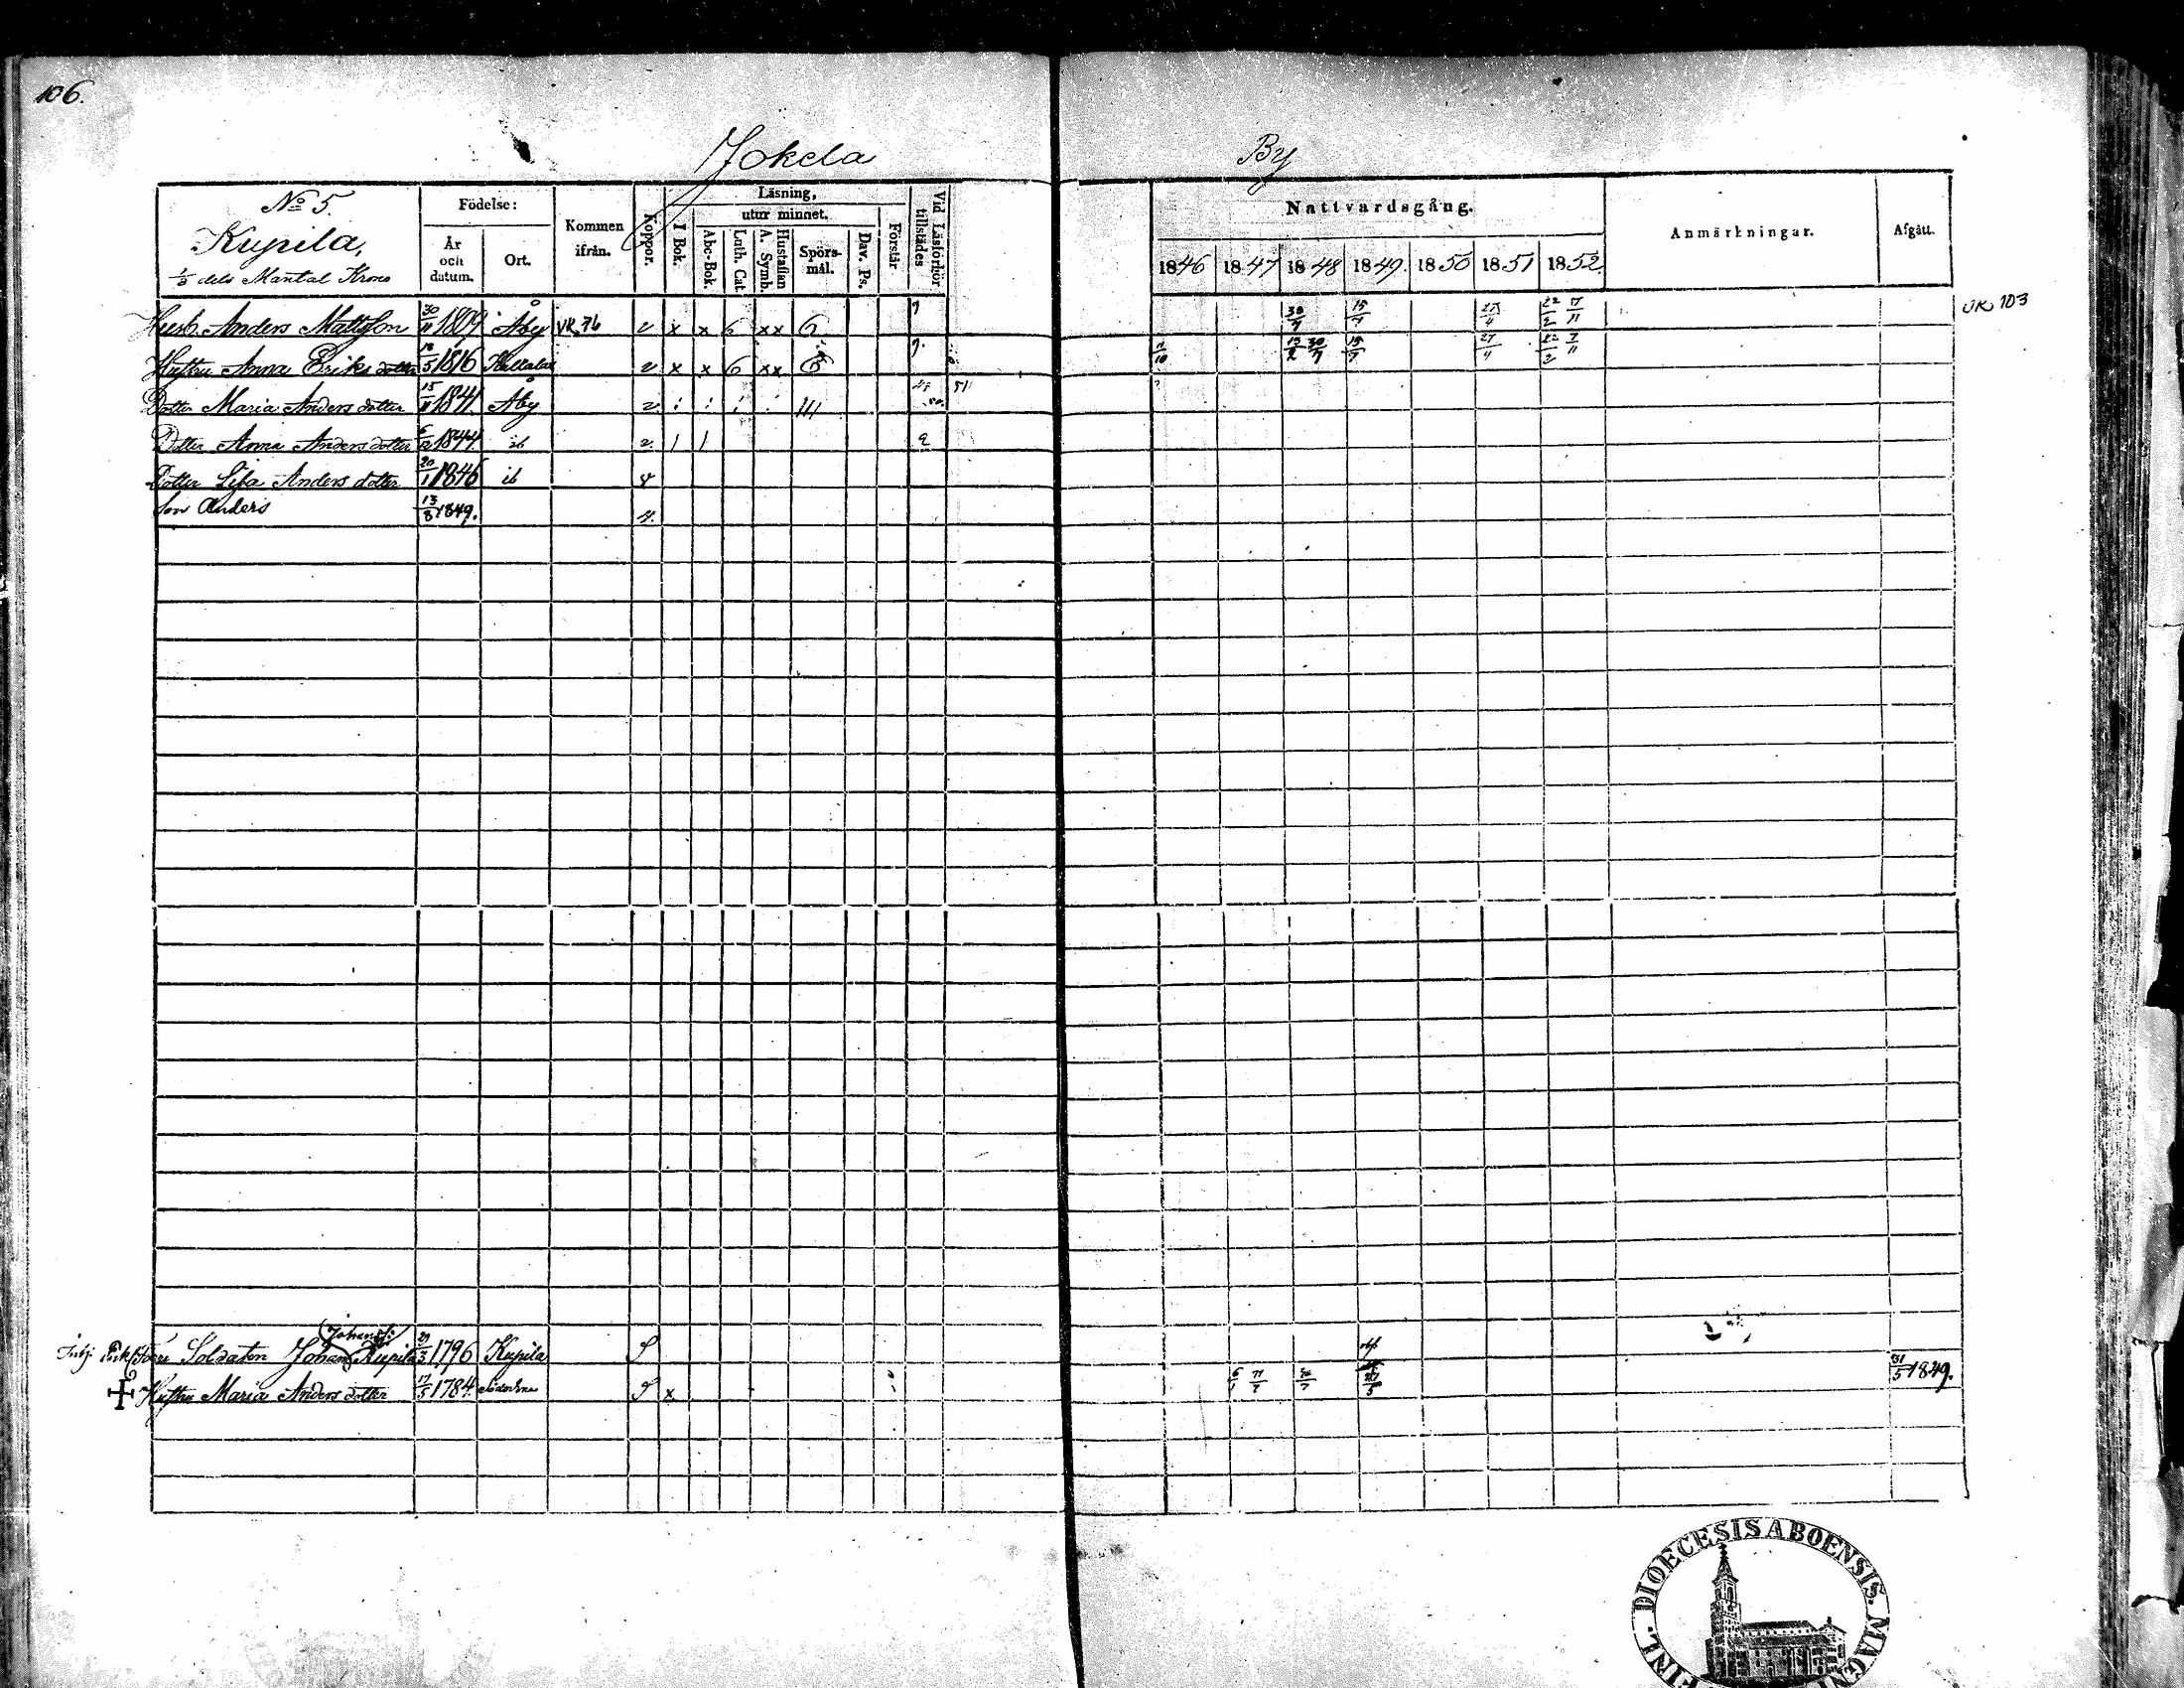 106.
Jokela By
No 5.
Kupila,
1/3 dels Mantal Krono
Födelse:
År och datum.
Ort.
Kommen ifrån.
Koppor.
Läsning,
I Bok.
utur minnet.
Abc-Bok.
Luth. Cat.
A. Symb.
Hustaflan
Spörs-mål.
Dav. Ps.
Förstår
Vid Läsförhör tillstädes
Nattvardsgång.
1846 1847 1848 1849. 1850 1851 1852.
Anmärkningar.
Afgått.
Husb. Anders Mattsson 30/11 1809 Åby VK 76 v x x 6 xx 6 30/7 15/7 27/4 22/2 7/11 UK 103
Hustru Anna Eriks dotter 18/5 1816 v x x 6 xx 6 11/10 13/2 30/7 15/7 27/4 22/2 7/11
Dotter Maria Anders dotter 15/11 1841. Åby v
Dotter Anna Anders dotter 6/12 1844. ib v
Dotter Lisa Anders dotter 20/1 1846 ib
Son Anders 13/8 1849.
Förre Soldaten Johan Johanss: Kupila 29/3 1796 Kupila
Hustru Maria Anders dotter 17/5 1784. x 31/5 1849.
FINL. DIOECESIS ABOENSIS. MAGN